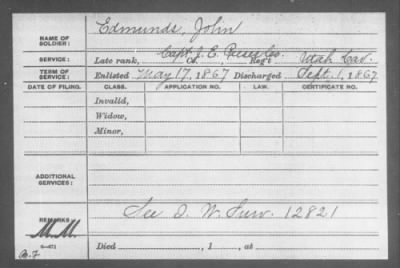 NAME OF SOLDIER: Edmunds, John
SERVICE: Late rank, Capt. J. E. Co. Reg't Utah Cav.
TERM OF SERVICE: Enlisted May 17, 1867 Discharged Sept. 1, 1867
DATE OF FILING. CLASS. APPLICATION NO. LAW. CERTIFICATE NO.
Invalid,
Widow,
Minor,
ADDITIONAL SERVICES:
REMARKS: See I. W. Surv. 12821
M.M.
Died , 1 , at